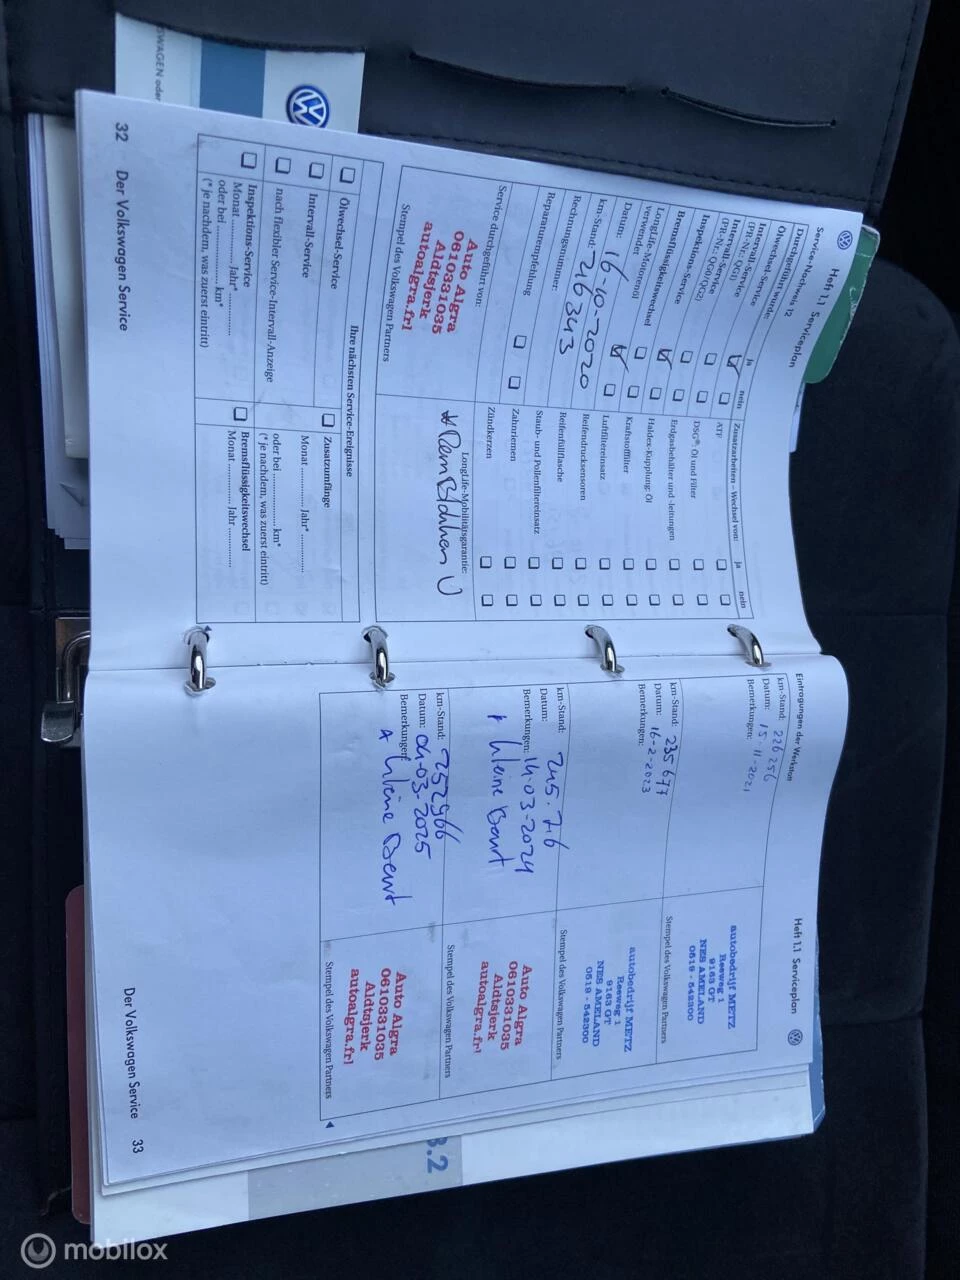 Heft 1.1 Serviceplan
Service-Nachweis 12
Durchgeführt wurde:
ja
nein
Ölwechsel-Service
Intervall-Service
(PR-Nr.: QG1)
Intervall-Service
(PR-Nr.: QG0/QG2)
Inspektions-Service
Bremsflüssigkeitswechsel
LongLife-Motorenöl
verwendet
Datum: 16-10-2020
km-Stand: 216343
Rechnungsnummer:
Reparaturempfehlung
Service durchgeführt von:
Auto Algra
0610331035
Aldtsjerk
autoalgra.frl
Stempel des Volkswagen Partners
Zusatzarbeiten – Wechsel von:
ja
nein
ATF
DSG®: Öl und Filter
Erdgasbehälter und -leitungen
Haldex-Kupplung: Öl
Kraftstofffilter
Luftfiltereinsatz
Reifendrucksensoren
Reifenfüllflasche
Staub- und Pollenfiltereinsatz
Zahnriemen
Zündkerzen
LongLife-Mobilitätsgarantie:
Ihre nächsten Service-Ereignisse
Ölwechsel-Service
Intervall-Service
nach flexibler Service-Intervall-Anzeige
Inspektions-Service
Monat Jahr*
oder bei km*
(* je nachdem, was zuerst eintritt)
Zusatzumfänge
Monat Jahr*
oder bei km*
(* je nachdem, was zuerst eintritt)
Bremsflüssigkeitswechsel
Monat Jahr
32 Der Volkswagen Service
Eintragungen der Werkstatt
Heft 1.1 Serviceplan
km-Stand: 226256
Datum: 15-11-2021
Bemerkungen:
autobedrijf METZ
Reeweg 1
9163 GT
NES AMELAND
0519 - 542300
Stempel des Volkswagen Partners
km-Stand: 235677
Datum: 16-2-2023
Bemerkungen:
autobedrijf METZ
Reeweg 1
9163 GT
NES AMELAND
0519 - 542300
Stempel des Volkswagen Partners
km-Stand: 245.716
Datum:
Bemerkungen: 14-03-2024
Kleine Beurt
Auto Algra
0610331035
Aldtsjerk
autoalgra.frl
Stempel des Volkswagen Partners
km-Stand: 252966
Datum: 04-03-2025
Bemerkungen:
Kleine Beurt
Auto Algra
0610331035
Aldtsjerk
autoalgra.frl
Stempel des Volkswagen Partners
Der Volkswagen Service 33
3.2
mobilox